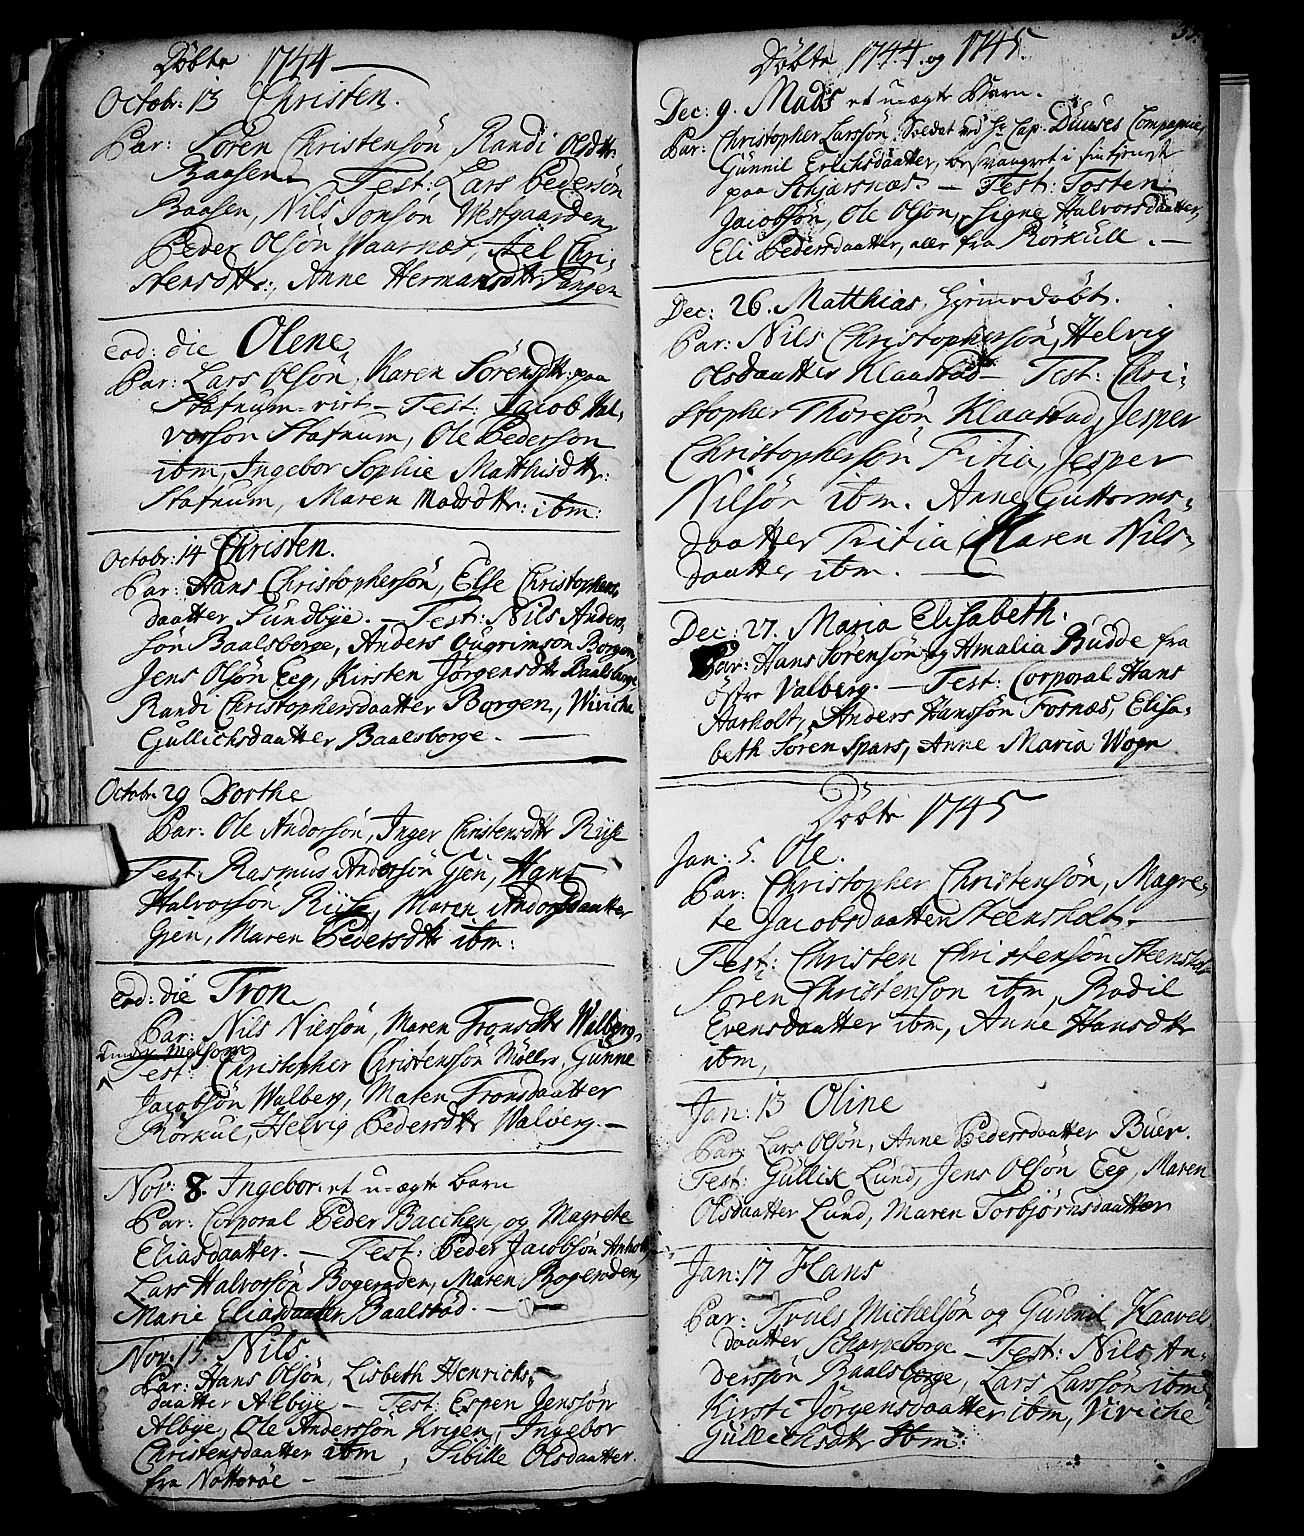 Döbte 1744
Octobr: 13 Christen.
Par: Sören Christensön, Randi Olsdttr:
Baasen. Test: Lars Pedersön
Baasen, Nils Jonsön Westgaarden,
Peder Olsön Vaarnæs, Axel Chri-
stensdttr:, Anne Hermansdttr Tangen
eod: die Olene
Par: Lars Olsön, Karen Sörensdttr: paa
Stafnum-rist - Test: Jacob Hal-
vorsön Stafnum, Ole Pedersön
ibm, Ingebor Sophie Matthisdttr:
Stafnum, Maren Madsdttr: ibm:
Octobr: 14 Christen.
Par: Hans Christophersön, Else Christophers
daatter Sundbye. - Test: Nils Anders-
sön Baalsberge, Anders Gugrimsön Borgen,
Jens Olsön Eeg, Kirsten Jörgensdttr Baalsberge
Randi Christophersdaatter Borgen, Wiviche
Gullichsdaatter Baalsborge.
Octobr. 29 Dorthe
Par: Ole Andorsön, Inger Christensdttr Riise
Test: Rasmus Andersön Gjen, Hans
Halvorsön Riise, Maren Andorsdaatter
Gjen, Maren Pedersdttr ibm:
eod: die Tron
Par: Nils Nielssön, Maren Tronsdttr Walberg,
Test: Christopher Christensön Möller, Gunne
Jacobsön Walberg, Maren Tronsdaatter
Rörkul, Helvig Pedersdttr Walberg.
Nov: 8. Ingebor: et u-ægte barn
Par: Corporal Peder Bacchen, og Magrete
Eliasdaatter. - Test: Peder Jacobsön Anholt
Lars Halvorsön Bogeroden, Maren Bogeroden,
Marie Eliasdaatter Baalstad.
Nov: 15. Nils.
Par: Hans Olsön, Lisbeth Henrichs-
daatter Albye - Test: Espen Jenssön
Albye, Ole Anderssön Krigen, Ingebor
Christensdaatter ibm, Sibille Olsdaatter
fra Nötteröe
Döbte 1744. og 1745.
Dec: 9. Mads et u-ægte Barn.
Par: Christopher Larssön, Soldet ved Hr Cap. Duuses Compagnie,
Gunnil Erichsdaatter, besvangret i sin tjeneste
paa Schjærsnæs. - Test: Tosten
Jacobsön, Ole Olsön, Signe Halvorsdaatter,
Eli Pedersdaatter, alle fra Rörkull.
Dec: 26. Matthias hjemmedöbt.
Par: Nils Christophersön, Helvig
Olsdaatter Klaastad - Test: Chri-
stopher Thoresön Klaastad, Jesper
Christophersön Fitia, Jesper
Nilsön ibm. Anne Guttorms-
daatter Fitia, Karen Nils-
daatter ibm.
Dec: 27. Maria Elisabeth.
Par: Hans Sörensön og Amalia Budde fra
östre Valberg. - Test: Corporal Hans
Aarholt, Anders Hanssön Fornæs, Elisa-
beth Sören Spars, Anne Maria Wogn
Döbte 1745
Jan: 5. Ole.
Par: Christopher Christensön, Magre-
te Jacobsdaatter Steensholt.
Test: Christen Christensön Steenshol
Sören Christensön ibm, Bodil
Evensdaatter ibm, Anne Hansdttr
ibm,
Jan: 13 Oline
Par: Lars Olsön, Anne Pedersdaatter Buer.
Test: Gullik Lund, Jens Olsön Eeg, Maren
Olsdaatter Lund, Maren Torbjörnsdaatter
Jan: 17 Hans
Par: Truls Mickelsön og Gunnil Haavel
daatter Scharpeborge - Test: Nils An-
dersön Baalsberge, Lars Larssön ibm,
Kirsti Jörgensdaatter ibm, Viviche
Gullichsdttr Ibm.